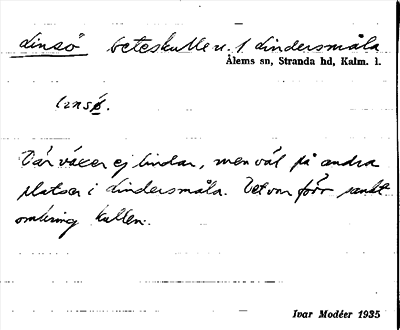 Linsö beteskulle u. 1 Lindersmåla
Ålems sn, Stranda hd, Kalm. l.
linsø̀.
Där växer ej lindar, men väl på andra
platser i Lindersmåla. Det var förr sankt
omkring kullen.
Ivar Modéer 1935